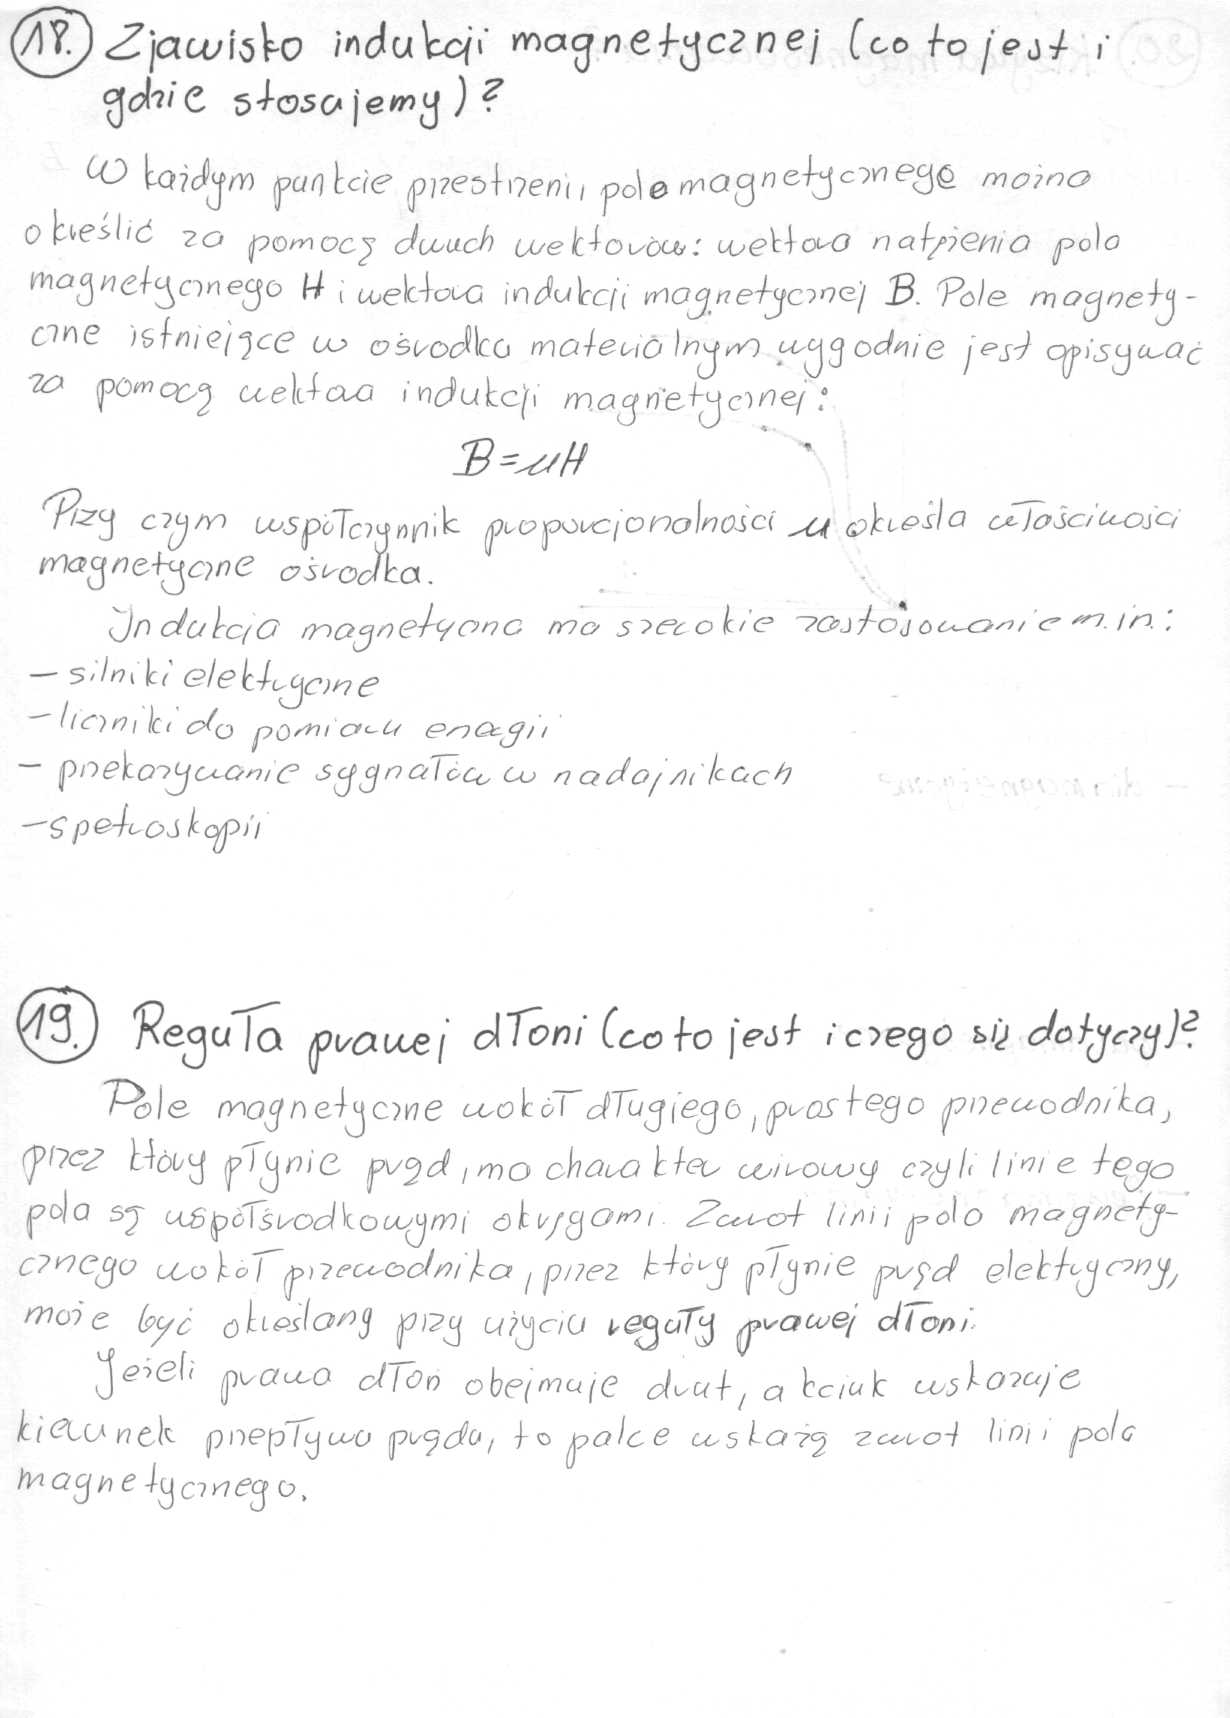 18. Zjawisko indukcji magnetycznej (co to jest i
gdzie stosujemy)?
W każdym punkcie przestrzeni, pole magnetycznego można
określić za pomocą dwuch wektorów: wektora natężenia pola
magnetycznego H i wektora indukcji magnetycznej B. Pole magnety-
czne istniejące w ośrodku materialnym wygodnie jest opisywać
za pomocą wektora indukcji magnetycznej:
B=μH
Przy czym współczynnik proporcjonalności μ określa właściwości
magnetyczne ośrodka.
Indukcja magnetyczna ma szerokie zastosowanie m.in.:
- silniki elektryczne
- liczniki do pomiaru energii
- przekazywanie sygnałów w nadajnikach
- spetroskopii
19. Reguła prawej dłoni (co to jest i czego się dotyczy)?
Pole magnetyczne wokół długiego, prostego przewodnika,
przez który płynie prąd, ma charakter wirowy czyli linie tego
pola są współśrodkowymi okręgami. Zwrot linii pola magnety-
cznego wokół przewodnika, przez który płynie prąd elektryczny,
może być określany przy użyciu reguły prawej dłoni.
Jeżeli prawa dłoń obejmuje drut, a kciuk wskazuje
kierunek przepływu prądu, to palce wskażą zwrot linii pola
magnetycznego.